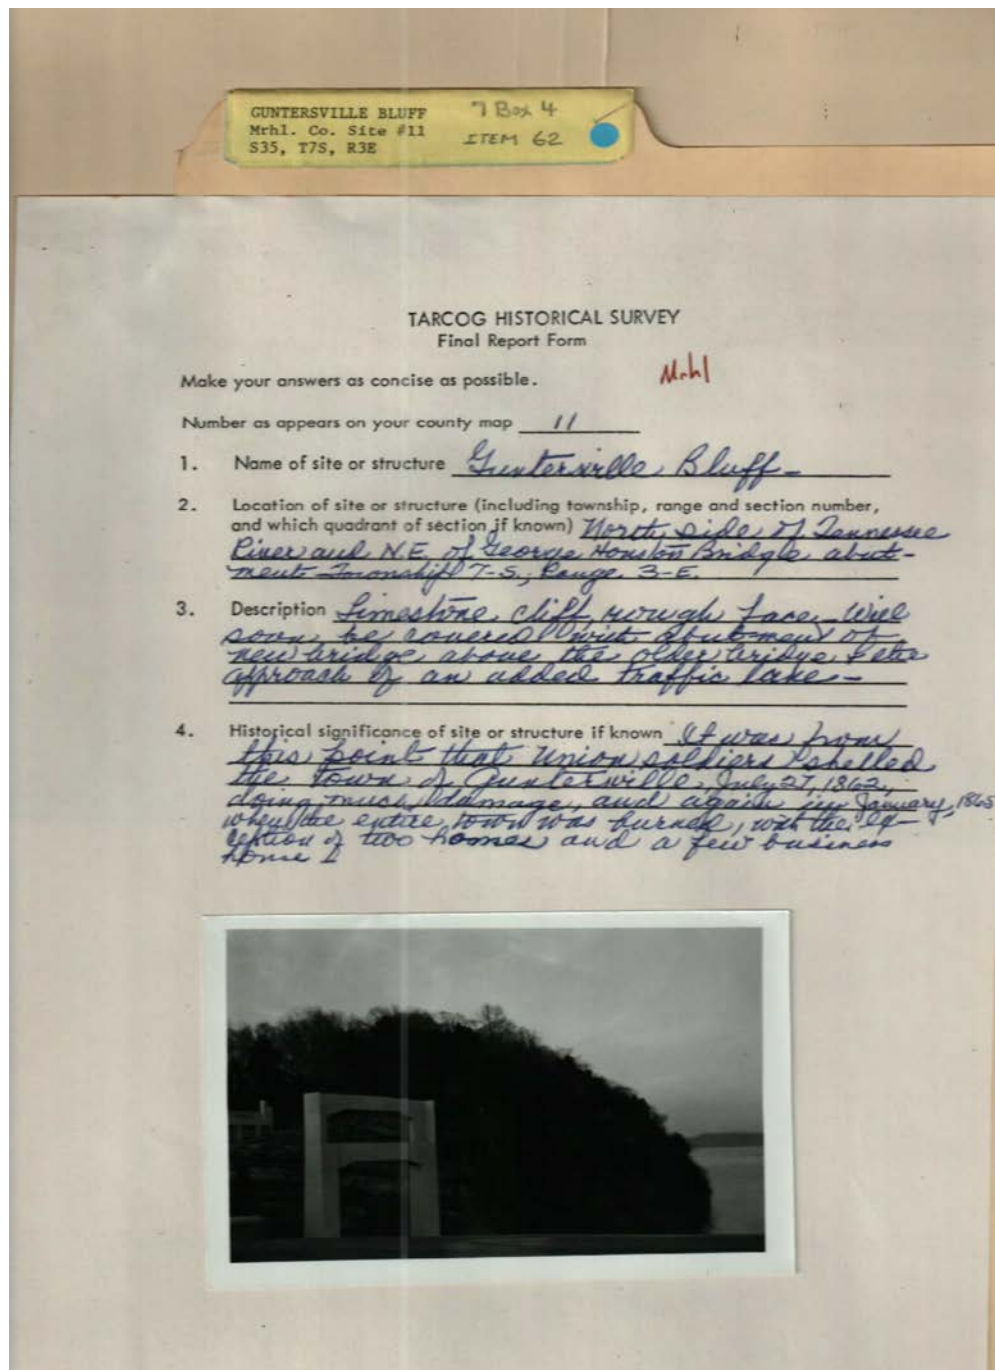 GUNTERSVILLE BLUFF 7 Box 4
Mrhl. Co. Site #11 ITEM 62
S35, T7S, R3E
TARCOG HISTORICAL SURVEY
Final Report Form
Mrhl
Make your answers as concise as possible.
Number as appears on your county map 11
1. Name of site or structure Guntersville Bluff-
2. Location of site or structure (including township, range and section number,
and which quadrant of section if known) North side of Tennessee
River and N.E. of George Houston Bridge abut-
ment Township 7-S., Range 3-E.
3. Description Limestone cliff, rough face, Will
soon be covered with abutment of
new bridge above the older bridge & the
approach of an added traffic lane-
4. Historical significance of site or structure if known It was from
this point that Union soldiers shelled
the town of Guntersville, July 27, 1862,
doing much damage, and again in January, 1865
when the entire town was burned, with the ex-
ception of two homes and a few business